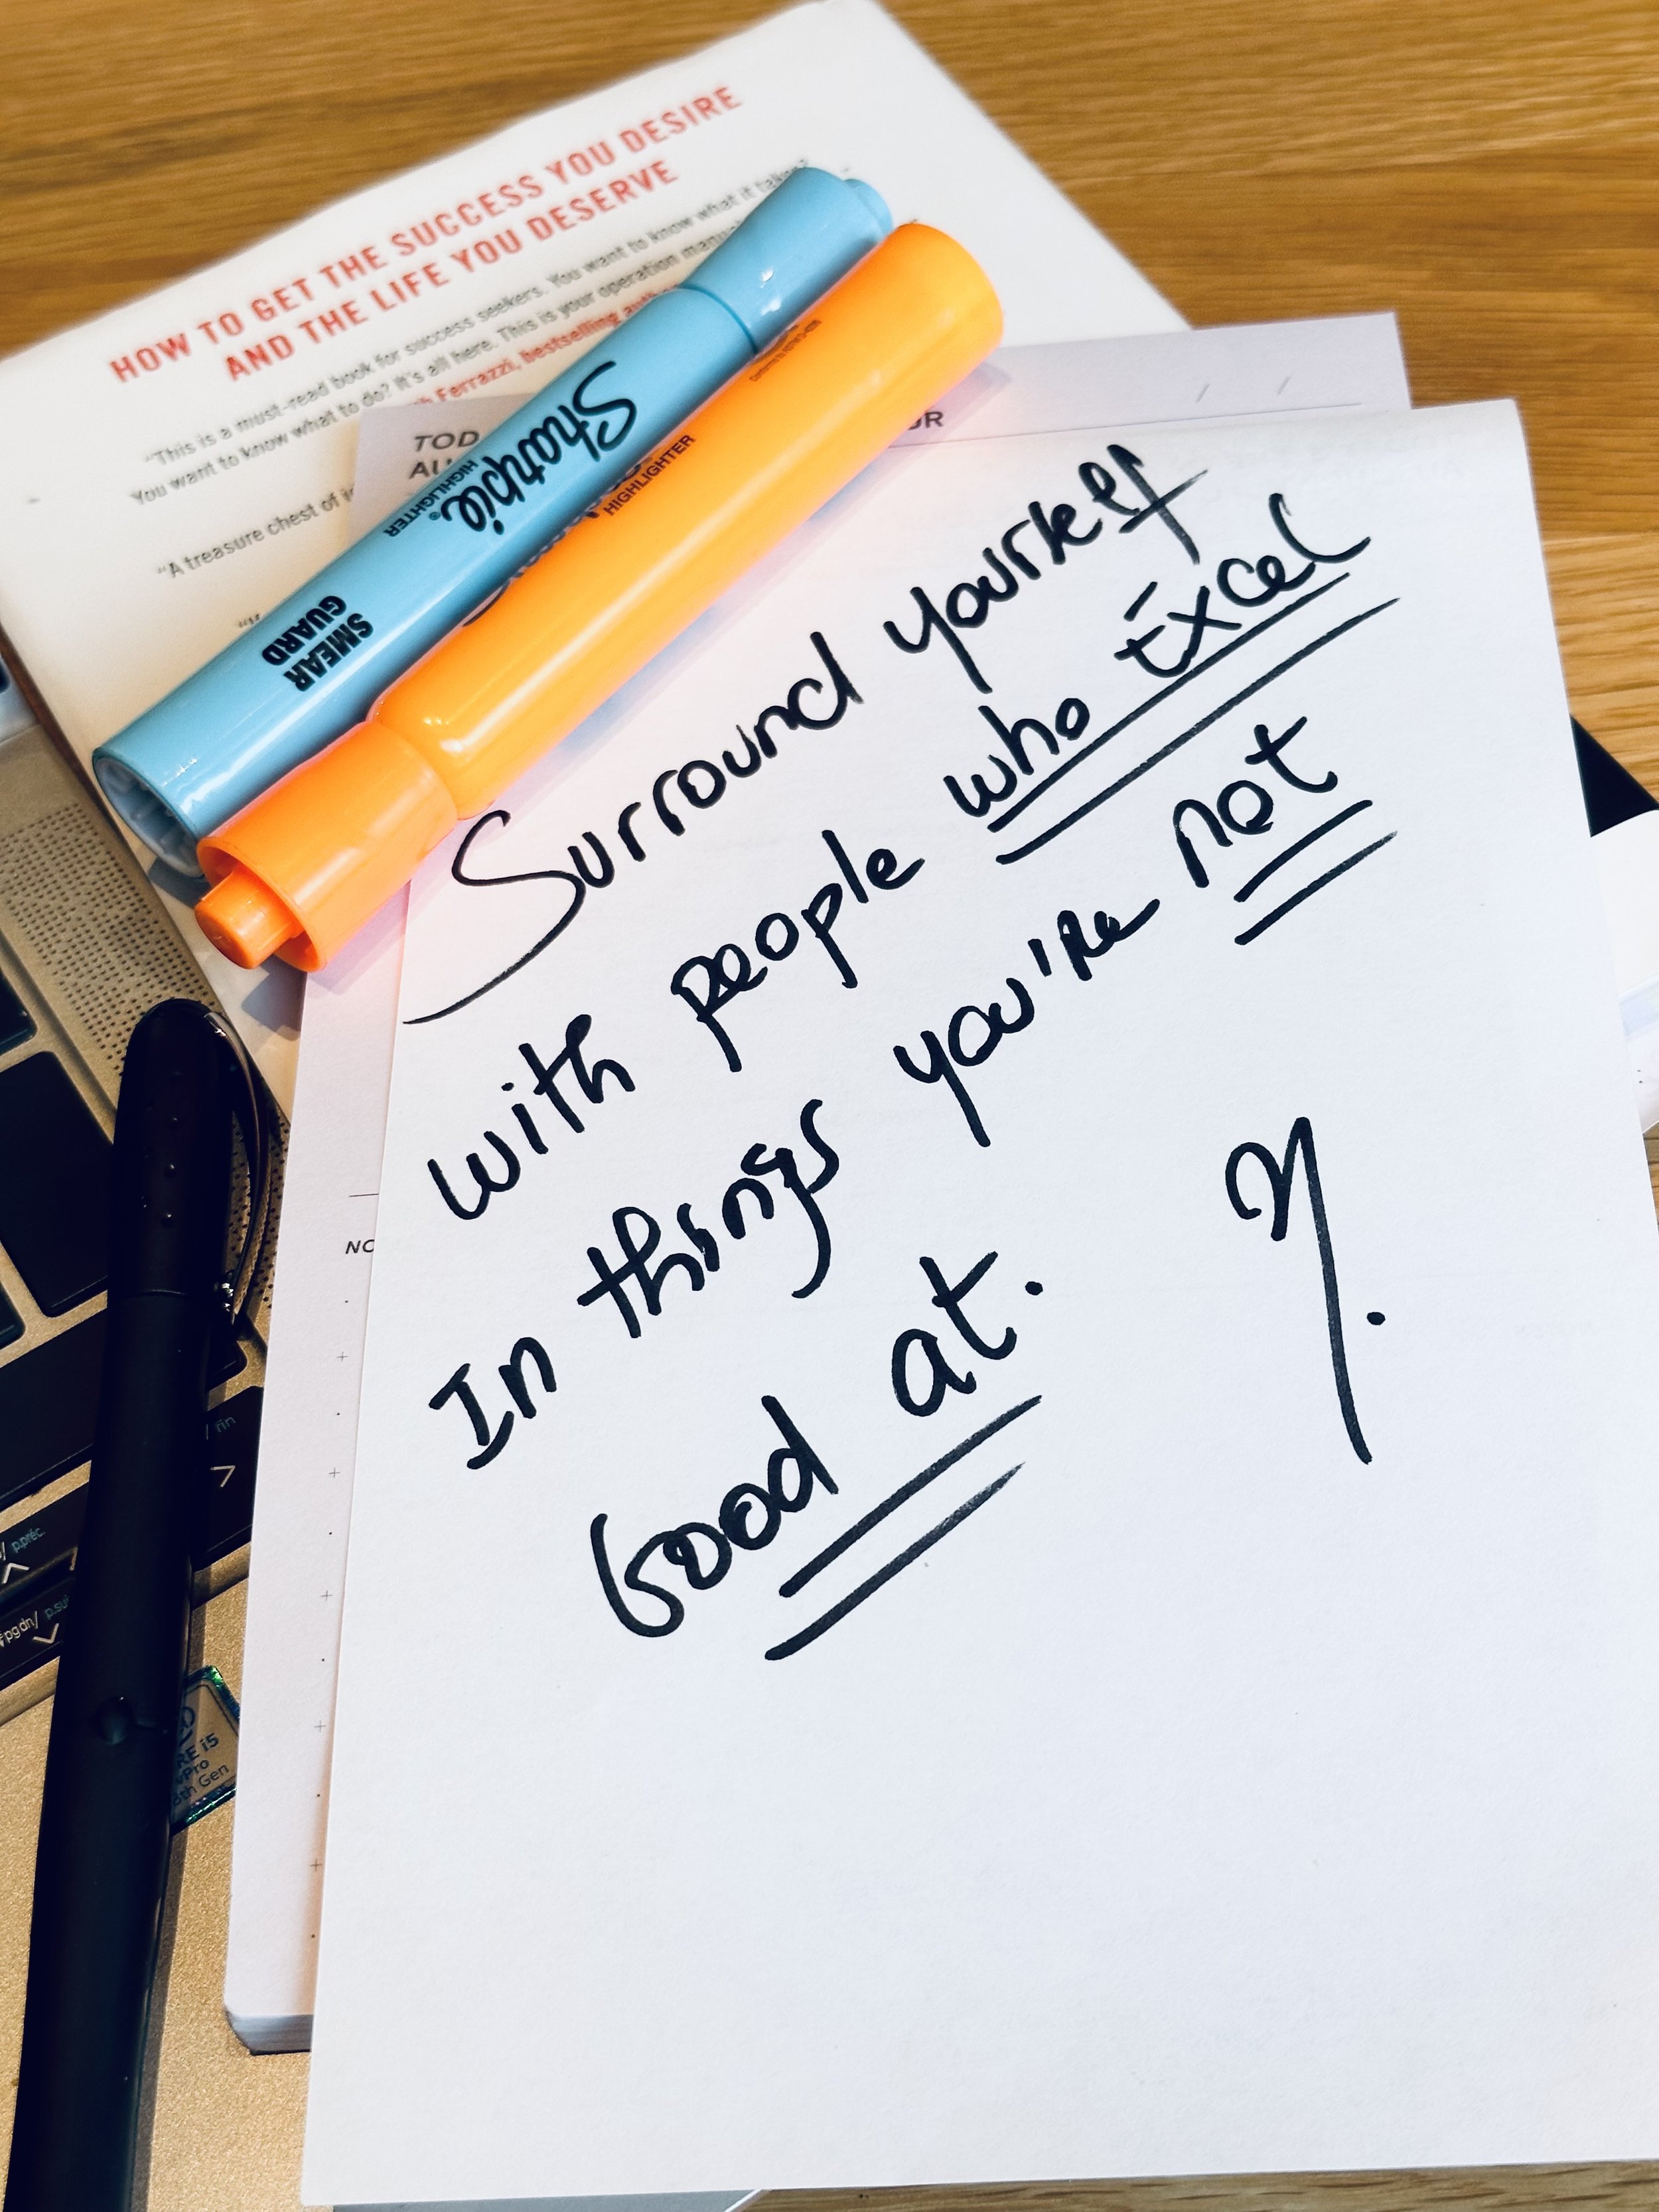 HOW TO GET THE SUCCESS YOU DESIRE
AND THE LIFE YOU DESERVE
"This is a must-read book for success seekers. You want to know what it takes
You want to know what to do? It's all here. This is your operation manual
Ferrazzi, bestselling
"A treasure chest of
Sharpie
HIGHLIGHTER
SMEAR
GUARD
HIGHLIGHTER
Surround yourself
with people who Excel
In things you're not
Good at.
pgdn/
8th Gen